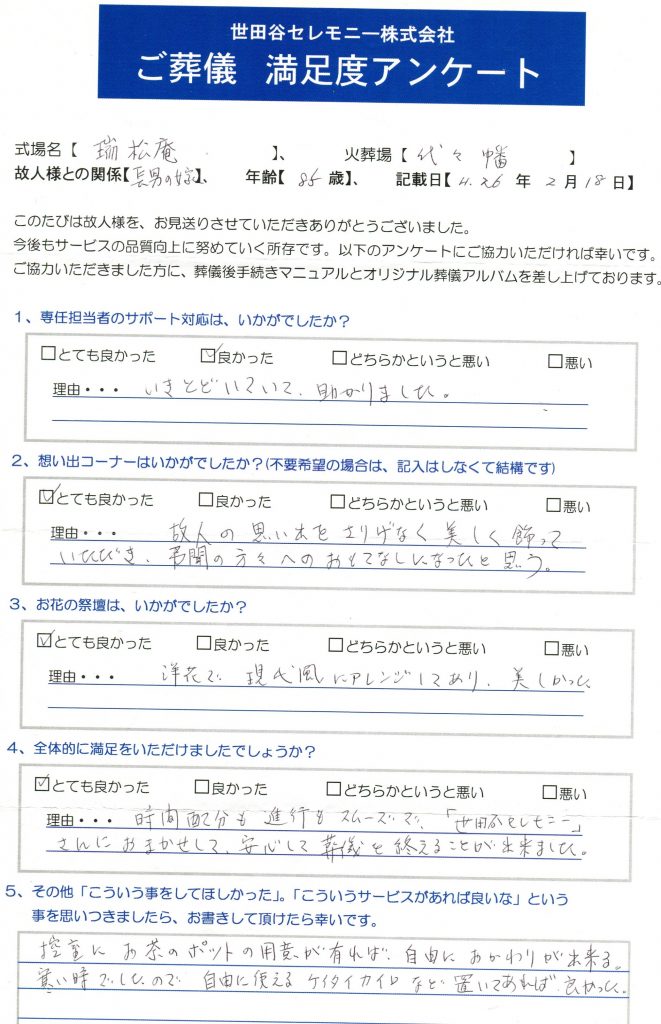 世田谷セレモニー株式会社
ご葬儀 満足度アンケート
式場名【 瑞松庵 】、 火葬場【 代々幡 】
故人様との関係【長男の嫁】、 年齢【 85 歳】、 記載日【 H.26 年 2 月 18 日】
このたびは故人様を、お見送りさせていただきありがとうございました。
今後もサービスの品質向上に努めていく所存です。以下のアンケートにご協力いただければ幸いです。
ご協力いただきました方に、葬儀後手続きマニュアルとオリジナル葬儀アルバムを差し上げております。
1、専任担当者のサポート対応は、いかがでしたか？
□とても良かった ☑良かった □どちらかというと悪い □悪い
理由・・・ いきとどいていて、助かりました。
2、想い出コーナーはいかがでしたか？(不要希望の場合は、記入はしなくて結構です)
☑とても良かった □良かった □どちらかというと悪い □悪い
理由・・・ 故人の思い出をさりげなく美しく飾って
いただき、弔問の方々へのおもてなしになったと思う。
3、お花の祭壇は、いかがでしたか？
☑とても良かった □良かった □どちらかというと悪い □悪い
理由・・・ 洋花で現代風にアレンジしてあり、美しかった。
4、全体的に満足をいただけましたでしょうか？
☑とても良かった □良かった □どちらかというと悪い □悪い
理由・・・ 時間配分も進行もスムーズで、「世田谷セレモニー」
さんにおまかせして、安心して葬儀を終えることが出来ました。
5、その他「こういう事をしてほしかった」。「こういうサービスがあれば良いな」という
事を思いつきましたら、お書きして頂けたら幸いです。
控室にお茶のポットの用意が有れば、自由におかわりが出来る。
寒い時でしたので自由に使えるケイタイカイロなど置いてあれば良かった。